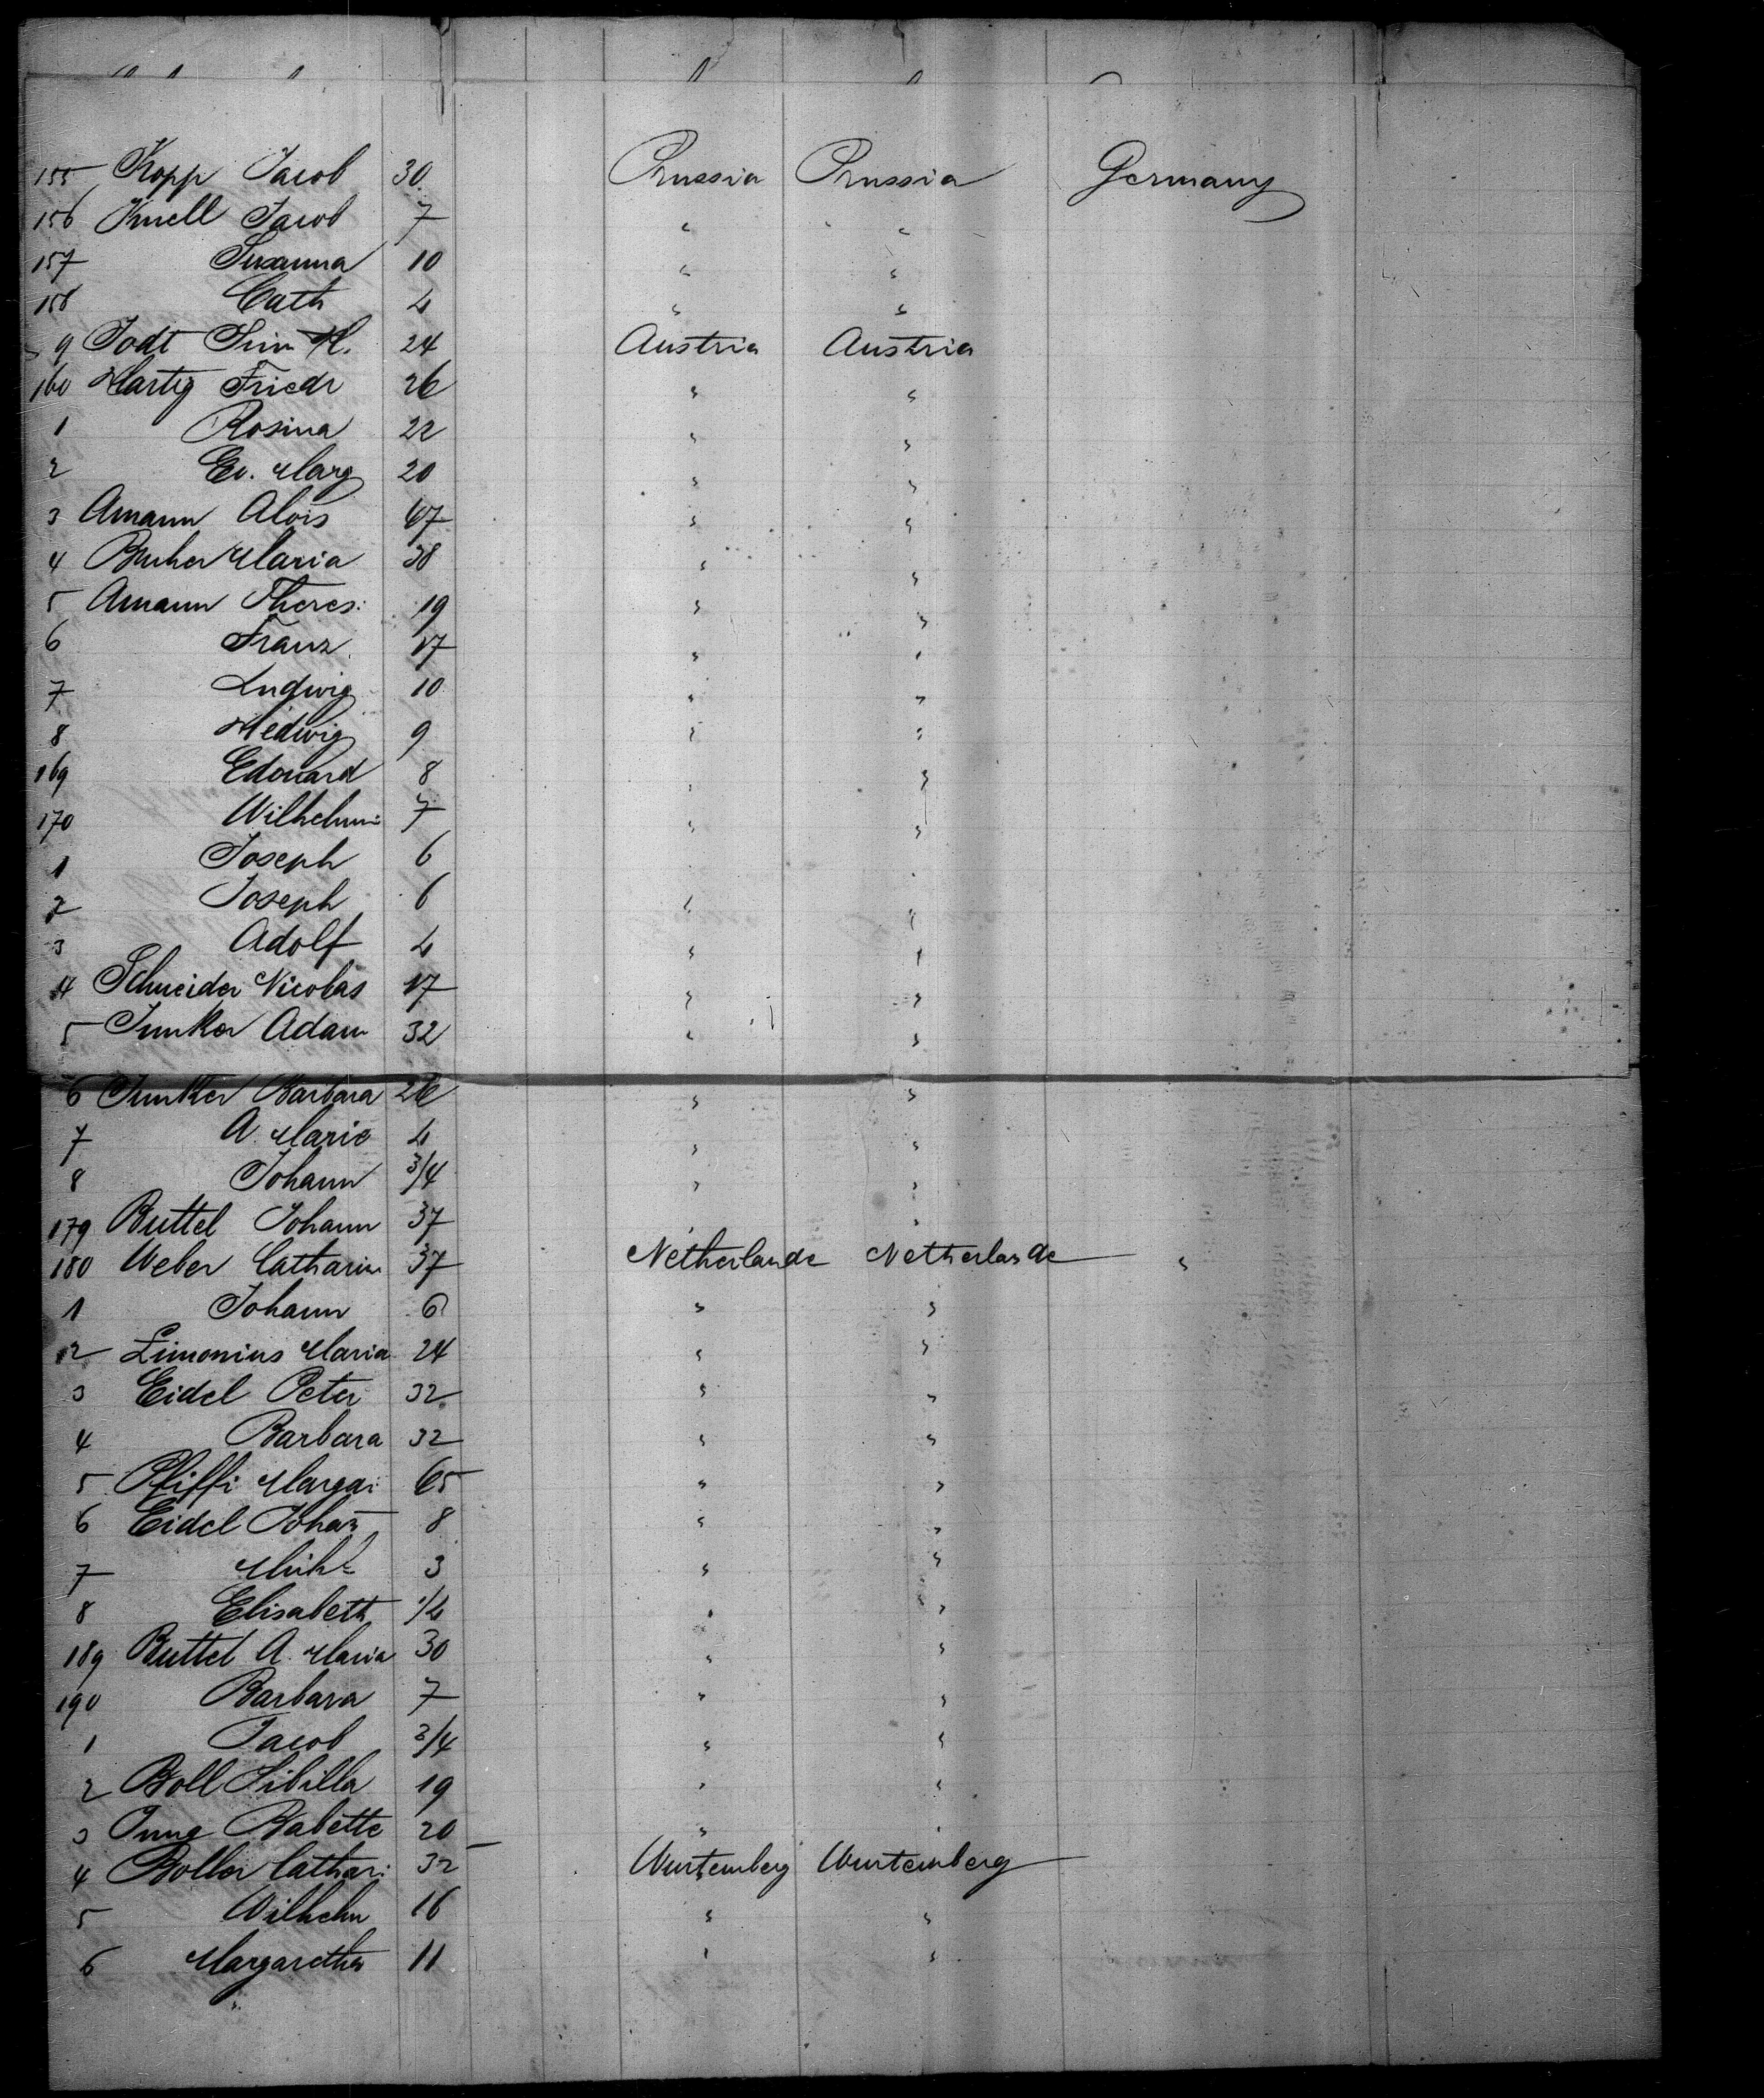 155 Kopp Jacob 30 Prussia Prussia Germany
156 Knell Jacob 7 " "
157 Susanna 10 " "
158 Cath 4 " "
9 Jodt H. 24 Austria Austria
160 Hartig Friedr 26 " "
1 Rosina 22 " "
2 Ev. Marg 20 " "
3 Amann Alois 47 " "
4 Maria 38 " "
5 Amann Theres: 19 " "
6 Franz 17 " "
7 Ludwig 10 " "
8 Hedwig 9 " "
169 Edouard 8 " "
170 Wilhelmi: 7 " "
1 Joseph 6
2 Joseph 6 " "
3 Adolf 4 " "
4 Schneider Nicolas 17 " "
5 Junker Adam 32 " "
6 Junker Barbara 26 " "
7 A. Marie 4 " "
8 Johann 3/4 " "
179 Buttel Johann 37 " "
180 Weber Catharin 37 Netherlande Netherlande "
1 Johann 6 " "
2 Limonius Maria 24 " "
3 Eidel Peter 32 " "
4 Barbara 32 " "
5 Pfiffi Margar: 65 " "
6 Eidel Johan 8 " "
7 3 " "
8 Elisabeth 1/4 " "
189 Buttel A. Maria 30 " "
190 Barbara 7 " "
1 Jacob 3/4 " "
2 Boll Sibilla 19 " "
3 Babette 20 " "
4 Boller Cathari: 32 Wurtemberg Wurtemberg
5 Wilhelm 16 " "
6 Margaretha 11 " "